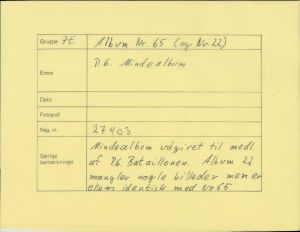 Gruppe 7E Album Nr. 65 (og Nr. 22)
Emne D.b. Mindealbum
Dato
Fotograf
Neg. nr. 27403
Særlige bemærkninger Mindealbum udgivet til medl.
af Db. Bataillonen. Album 22
mangler nogle billeder men er
ellers identisk med Nr 65